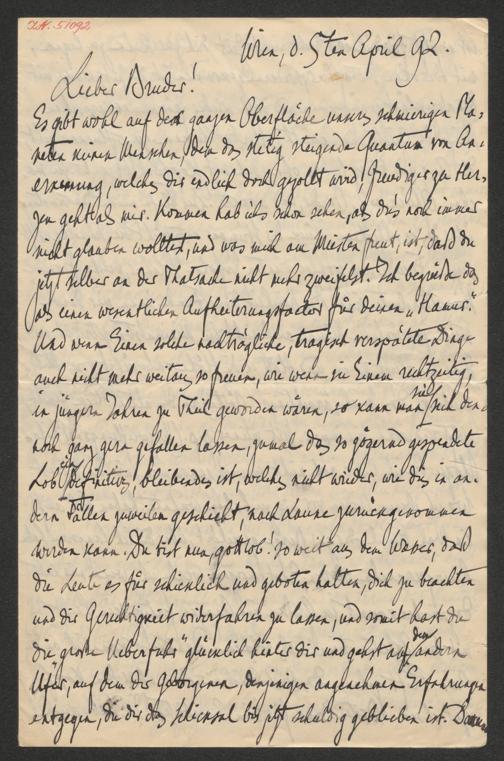 I.N. 51092
Wien, d. 5ten April 92.
Lieber Bruder!
Es gibt wohl auf der ganzen Oberfläche unseres schmierigen Pla-
neten keinen Menschen, dem das stetig steigende Quantum von An-
erkennung, welches dir endlich doch gezollt wird, freudiger zu Her-
zen geht als mir. Kommen hab ichs schon sehen, als du's noch immer
nicht glauben wolltest, und was mich am Meisten freut, ist, daß du
jetzt selber an der Thatsache nicht mehr zweifelst. Ich begrüße das
als einen wesentlichen Aufheiterungsfactor für deinen „Hamur".
Und wenn Einen solche nachträgliche, tragisch verspätete Dinge
auch nicht mehr weitaus so freuen, wie wenn sie Einem rechtzeitig,
in jüngern Jahren zu Theil geworden wären, so kann man sie sich den-
noch ganz gern gefallen lassen, zumal das so zögernd gespendete
Lob Definitives, bleibendes ist, welches nicht wieder, wie dies in an-
dern Fällen zuweilen geschieht, nach Laune zurückgenommen
werden kann. Du bist nun, gottlob! so weit aus dem Wasser, daß
die Leute es für schicklich und geboten halten, dich zu beachten
und dir Gerechtigkeit widerfahren zu lassen, und somit hast du
die große „Ueberfuhr" glücklich hinter dir und gehst auf dem andern
Ufer, auf dem der Geborgenen, denjenigen angenehmen Erfahrungen
entgegen, die dir das Schicksal bis jetzt schuldig geblieben ist.